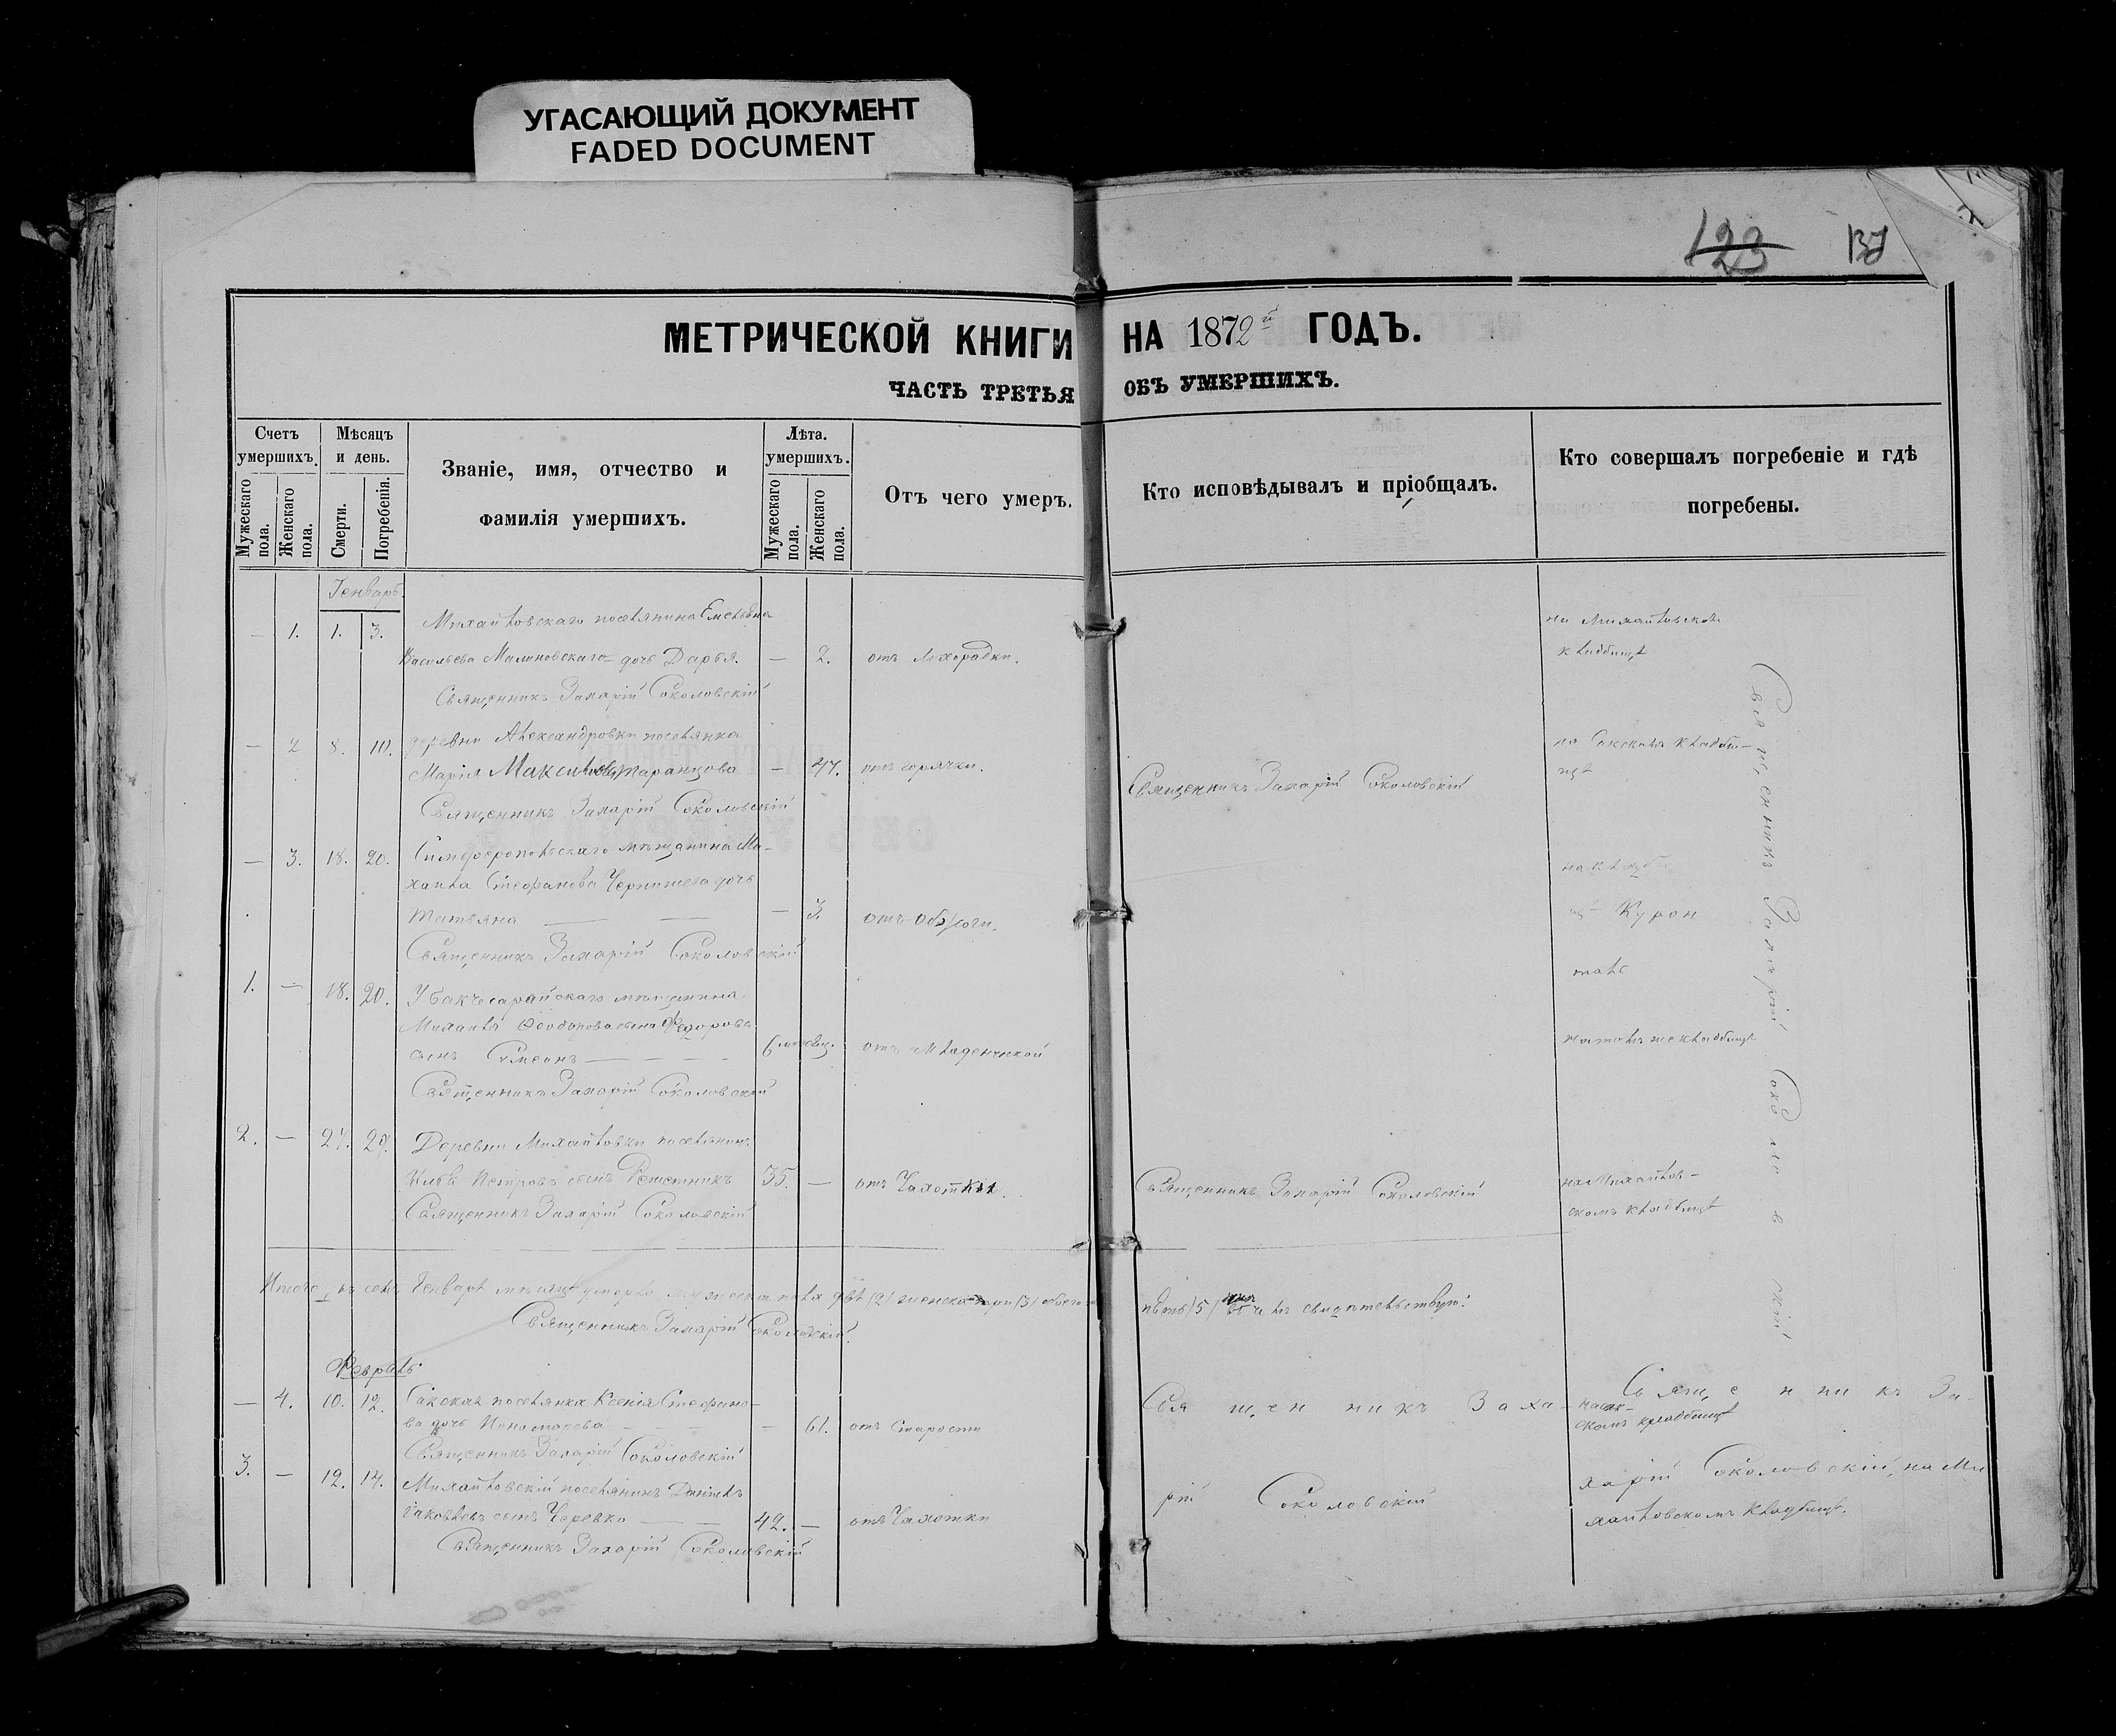 УГАСАЮЩИЙ ДОКУМЕНТ
FADED DOCUMENT
123
МЕТРИЧЕСКОЙ КНИГИ НА 1872й ГОДЪ.
ЧАСТЬ ТРЕТЬЯ ОБЪ УМЕРШИХЪ.
Счетъ умершихъ.
Мужескаго пола.
Женскаго пола.
Мѣсяцъ и день.
Смерти.
Погребенія.
Званіе, имя, отчество и
фамилія умершихъ.
Лѣта. умершихъ.
Мужескаго пола.
Женскаго пола.
Отъ чего умеръ.
Кто исповѣдывалъ и пріобщалъ.
Кто совершалъ погребеніе и гдѣ
погребены.
Генварь.
— 1. 1. 3. Михайловскаго поселянина Емельяна на Михайловском
Васильева Малиновскаго дочь Дарья. — 2. отъ Лихорадки. кладбищѣ
Священникъ Захарій Соколовскій
— 2 8. 10. деревни Александровки поселянка на Сакскомъ кладби-
Марія Максимова Таранцова — 47. отъ горячки. Священникъ Захарій Соколовскій щѣ
Священникъ Захарій Соколовскій
— 3. 18. 20. Симферопольскаго мѣщанина Ми- на кладби
хаила Стефанова дочь щѣ Курон
Татьяна — — — 3. отъ таль
Священникъ Захарій Соколовскій
1. — 18. 20. У бакчесарайскаго мѣщанина
Михаила Феодорова сына Федорова
сынъ Симеонъ — — — 6 мѣсяц. отъ Младенческой на томъ же кладбищѣ
Священникъ Захарій Соколовскій
2. — 27. 29. Деревни Михайловки поселянинъ
Петровъ сынъ Решетникъ 35. — отъ Чахотки. Священникъ Захарій Соколовскій на Михайлов-
Священникъ Захарій Соколовскій скомъ кладбищѣ
Священникъ Захарій Соколовскій
Итого, въ семъ Генварѣ мѣсяцѣ умерло мужеска пола два /2/ женска три /3/ обоего пять /5/ въ чемъ свидѣтельствую:
Священникъ Захарій Соколовскій.
Февраль
— 4. 10. 12. Сакская поселянка Ксенія Стефано- Священникъ Заха- Священникъ За-
ва дочь Пономарева — — 61. отъ Старости скомъ кладбищѣ
Священникъ Захарій Соколовскій
3. — 12. 14. Михайловскій поселянинъ Даніилъ харій Соколовскій, на Ми
Яковлевъ сынъ Черевко — — 42. — отъ Чахотки рій Соколовскій хайловскомъ кладбищѣ.
Священникъ Захарій Соколовскій